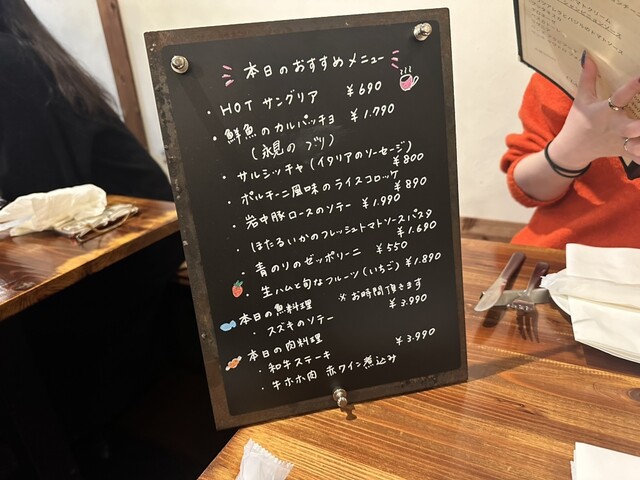 本日のおすすめメニュー
・HOT サングリア ¥690
・鮮魚のカルパッチョ ¥1.790
(氷見の ブリ)
・サルシッチャ(イタリアのソーセージ) ¥800
・ポルチーニ風味のライスコロッケ ¥890
・岩中豚ロースのソテー ¥1.990
・ほたるいかのフレッシュトマトソースパスタ ¥1.690
・青のりのゼッポリーニ ¥550
・生ハムと旬なフルーツ(いちご) ¥1.890
本日の魚料理 ※お時間頂きます
・スズキのソテー ¥3.990
本日の肉料理
・和牛ステーキ ¥3.990
・牛ホホ肉 赤ワイン煮込み